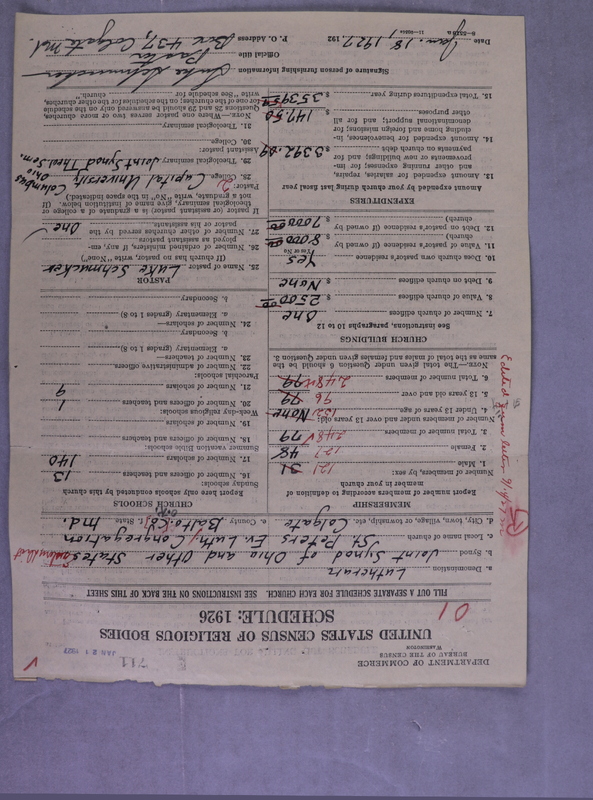 DEPARTMENT OF COMMERCE
BUREAU OF THE CENSUS
WASHINGTON
711
JAN 21 1927
UNITED STATES CENSUS OF RELIGIOUS BODIES
SCHEDULE: 1926
01
FILL OUT A SEPARATE SCHEDULE FOR EACH CHURCH. SEE INSTRUCTIONS ON THE BACK OF THIS SHEET
a. Denomination Lutheran
b. Synod Joint Synod of Ohio and Other States
c. Local name of church St Peters Ev. Luth. Congregation
d. City, town, village, or township, etc. Colgate e. County Balto. Co. f. State Md.
MEMBERSHIP
Report number of members according to definition of member in your church
Number of members, by sex:
1. Male 121 31
2. Female 127 48
3. Total number of members 248 79
Number of members under and over 13 years old:
4. Under 13 years of age 152 None
5. 13 years old and over 96 79
6. Total number of members 248 79
NOTE.—The total given under Question 6 should be the same as the total of males and females given under Question 3.
CHURCH BUILDINGS
See instructions, paragraphs 10 to 12
7. Number of church edifices One
8. Value of church edifices $ 2500.00
9. Debt on church edifices $ None
10. Does church own pastor's residence Yes
(Yes or No)
11. Value of pastor's residence (if owned by church) $ 8000.00
12. Debt on pastor's residence (if owned by church) $ 7000.00
EXPENDITURES
Amount expended by your church during last fiscal year
13. Amount expended for salaries, repairs, and other running expenses; for improvements or new buildings; and for payments on church debt $ 3392.09
14. Amount expended for benevolences, including home and foreign missions; for denominational support; and for all other purposes $ 147.50
15. Total expenditures during year $ 3539.59
CHURCH SCHOOLS
Report here only schools conducted by this church
Sunday schools:
16. Number of officers and teachers 13
17. Number of scholars 140
Summer vacation Bible schools:
18. Number of officers and teachers
19. Number of scholars
Week-day religious schools:
20. Number of officers and teachers 1
21. Number of scholars 9
Parochial schools:
22. Number of administrative officers
23. Number of teachers—
a. Elementary (grades 1 to 8)
b. Secondary
24. Number of scholars—
a. Elementary (grades 1 to 8)
b. Secondary
PASTOR
25. Name of pastor Luke Schmucker
(If church has no pastor, write "None")
26. Number of other ordained ministers, if any, employed as assistant pastors
27. Number of other churches served by the pastor or his assistants One
If pastor (or assistant pastor) is a graduate of a college or theological seminary, give name of institution below. (If not a graduate, write "No" in the space indicated.)
Pastor: 2
28. College Capital University Columbus Ohio
29. Theological seminary Joint Synod Theol. Sem.
Assistant pastor:
30. College
31. Theological seminary
NOTE.—Where one pastor serves two or more churches, Questions 28 and 29 should be answered only on the schedule for one of the churches; on the schedule for the other churches, write "See schedule for church."
Signature of person furnishing information Luke Schmucker
Official title Pastor
Date Jan. 18, 1927 192
P. O. Address Box 437, Colgate Md.